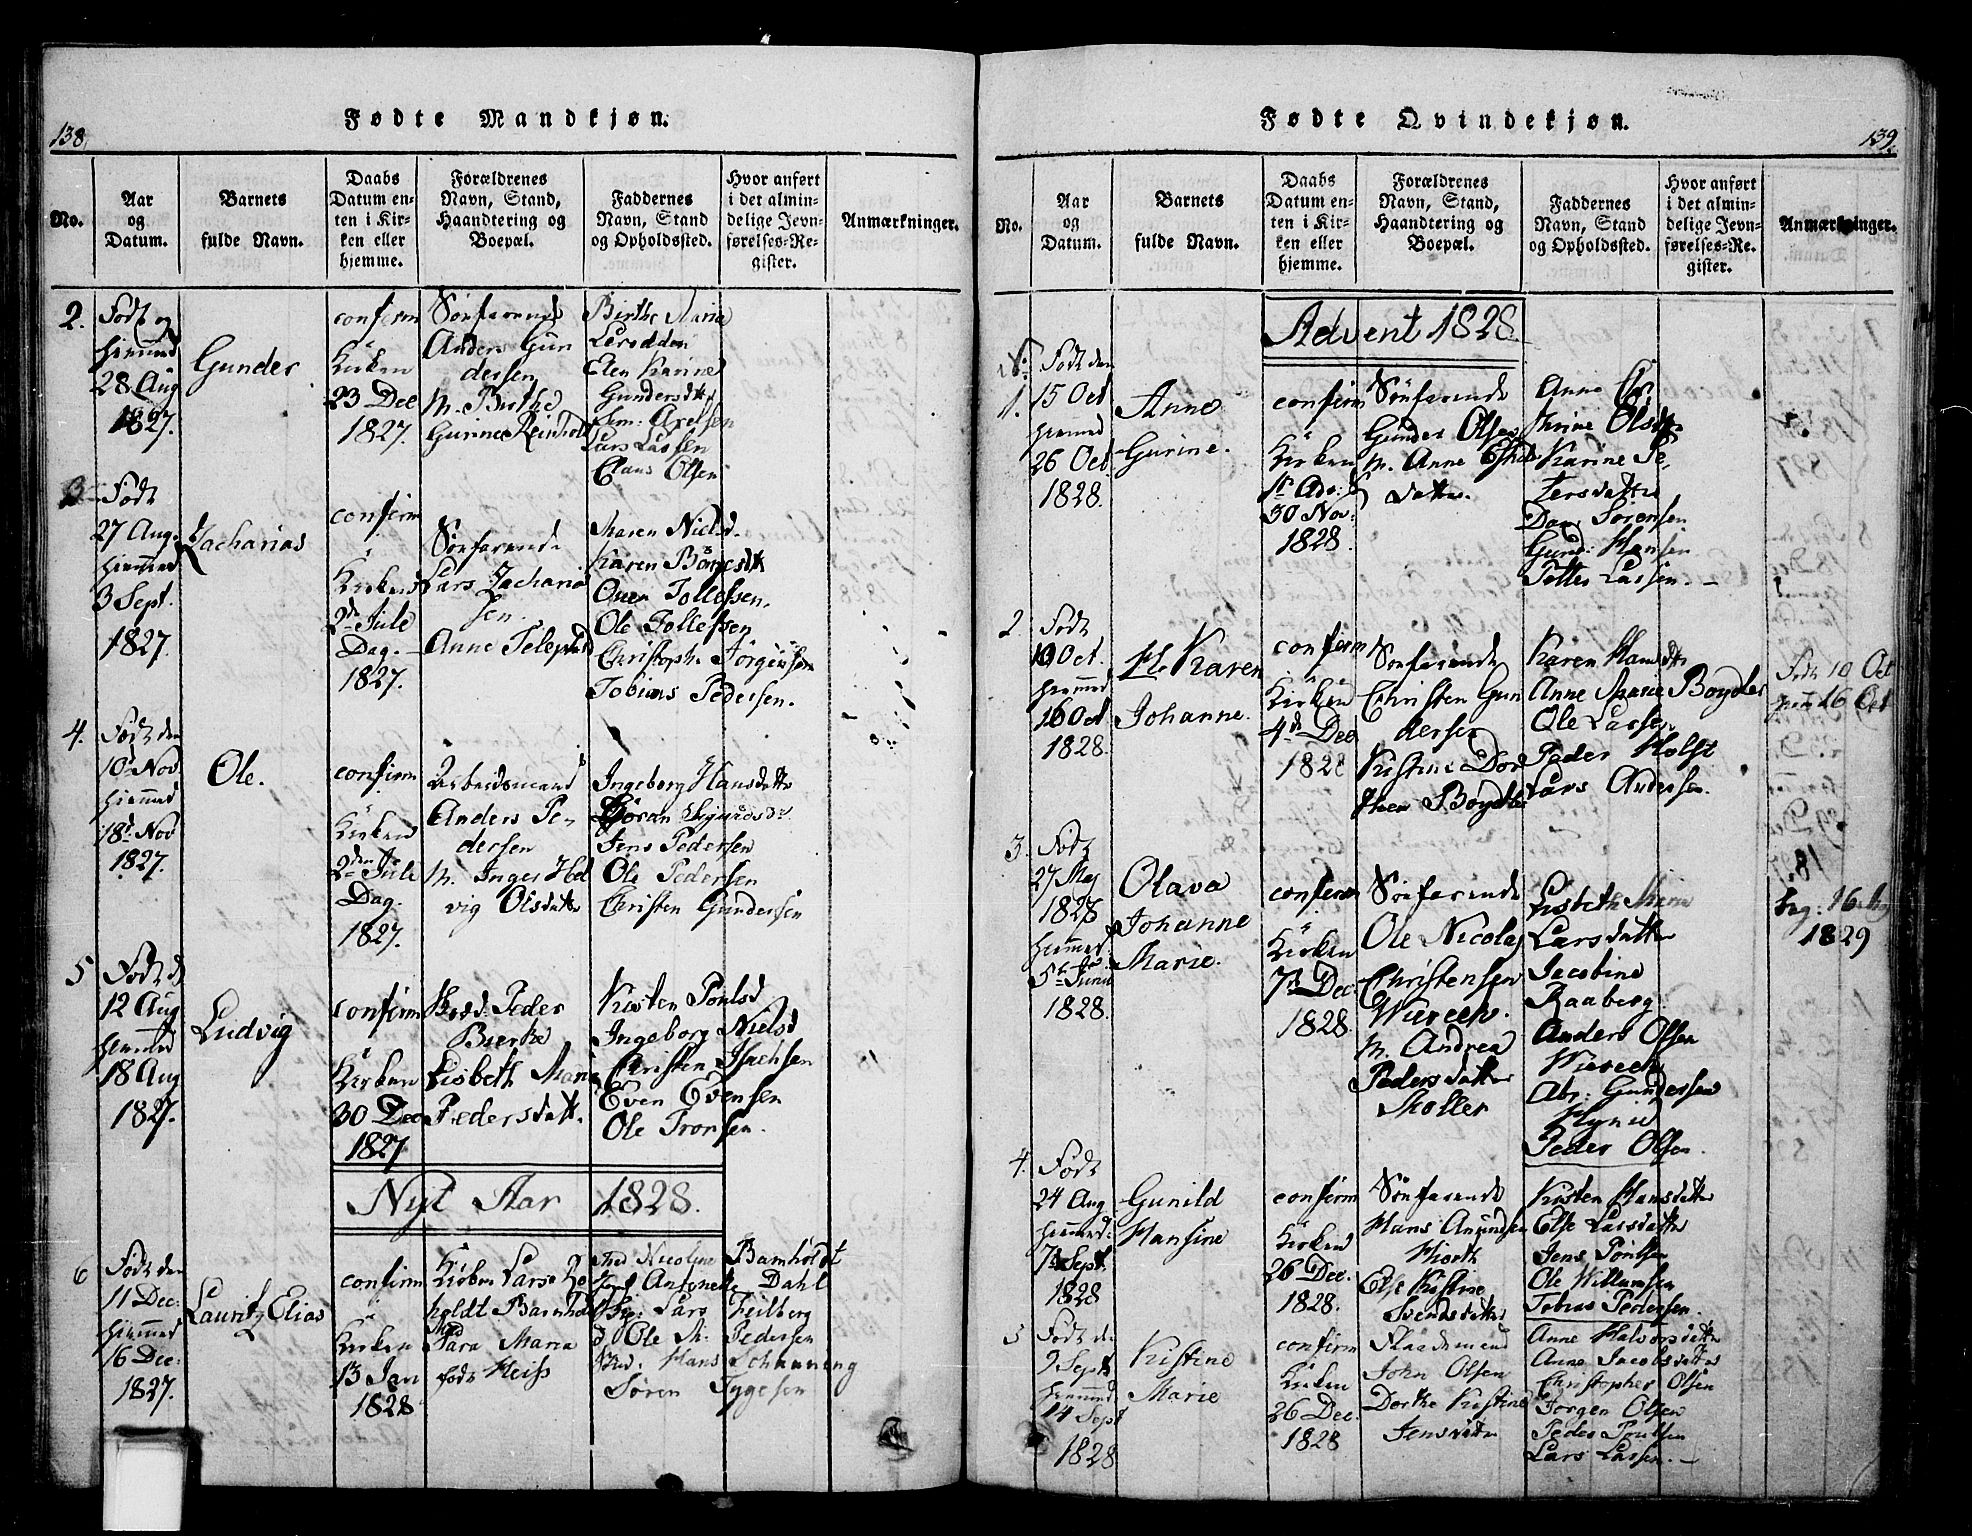 138.
Fødte Mandkjøn.
No.
Aar
og
Datum.
Barnets
fulde Navn.
Daabs
Datum en-
ten i Kir-
ken eller
hjemme.
Forældrenes
Navn, Stand,
Haandtering og
Boepæl.
Faddernes
Navn, Stand
og Opholdssted.
Hvor anført
i det almin-
delige Jevn-
førelses-Re-
gister.
Anmærkninger.
2.
Født og
hiemmed
28 Aug
1827.
Gunder
confirm
i
Kirken
23 Dec
1827.
Søefarende
Anders Gun
dersen
m. Birthe
Gurine Reinhold
Birthe Maria
Elen Karine
Gundersdtt
Sem: Axelsen
Lars Lassen
Claus Olsen
3
Født
27 Aug.
hiemmed
3 Sept.
1827.
Zacharias
confirm
i
Kirken
2d Jule
Dag.
1827.
Søefarende
Lars Zacharia
sen.
Anne
Maren Nielsd.
Karen Börresdtt
Ole Tollefsen
Christoph: Jörgensen
Tobias Pedersen.
4.
Født den
10 Nov
hiemmed
18d Nov
1827.
Ole.
confirm
i
Kirken
2den Jule
Dag.
1827.
Arbeidsmand
Anders Pe-
dersen
m. Inger Hel
vig Olsdatter
Ingeborg Hansdatter
Jens Pedersen
Ole Pedersen
Christen Gundersen
5
Født d
12 Aug
hiemmed
18 Aug
1827.
Ludvig
confirm
i
Kirken
30 Dec
1827
Peder
Bierke
Lisbeth Marie
Pedersdatt.
Kirsten Poulsd
Ingeborg Nielsd
Christen Isachsen
Even Evensen
Ole Tronsen.
Nyt Aar 1828.
6
Født den
11 Dec:
hiemmed
16 Dec:
1827.
Lauritz Elias
confirm
i
Kirken
13 Jan
1828
Lars
holdt Barnholdt
Sara Maria
født Heiss
Nicoline Barnholdt
Antonett Dahl
Lars Feilberg
Ole M: Pedersen
Hans Schanning
Sören Tygesen
139.
Fødte Qvindekjøn.
No.
Aar
og
Datum.
Barnets
fulde Navn.
Daabs
Datum en-
ten i Kir-
ken eller
hjemme.
Forældrenes
Navn, Stand,
Haandtering og
Boepæl.
Faddernes
Navn, Stand
og Opholdssted.
Hvor anført
i det almin-
delige Jevn-
førelses-Re-
gister.
Anmærkninger.
Advent 1828
1.
Født den
15 Oct
hiemmed
26 Oct
1828.
Anne
Gurine.
confirm
i
Kirken
1st Adv: S
30 Nov:
1828.
Søefarende
Gunder Olsen
m. Anne Eskils
datter.
Anne
Trine Olsdtt
Karine Pe-
tersdatter
Sörensen
Gund: Hansen
Lassen. –
2
Født
10 Oct.
hiemmed
16 Oct
1828.
Karen
Johanne.
confirm
i
Kirken
4d Dec
1828
Søefarende
Christen Gun
dersen
Kistine Doro
thea Boydler
Karen Hansdtt
Anne Marie Boydler
Ole Larsen
Peder Holst
Lars Andersen.
Født 10 Oct
hiem 16 Oct
3.
Født
27 Maj
1828
hiemmed.
5te Juni
1828.
Olava
Johanne
Marie.
confirm
i
Kirken
7d Dec
1828.
Søefarende
Ole Nicolaj
Christensen
Wireen.
m. Andrea
Pedersdatter
Møller
Lisbeth Maria
Larsdatter
Jacobine
Raaberg
Anders Olsen
Wireen
Abr: Gundersen
Peder Olsen.
1829
4.
Født
24 Aug
hiemmed:
7d Sept.
1828
Gunild
Hansine
confirm
i
Kirken
26 Dec.
1828.
Søefarende
Hans Amundsen
Hiorth
Else Kistine
Svendsdatter
Kirsten Hansdatter
Else Larsdatter
Jens Poulsen
Ole Willumsen
Tobias Pedersen.
5
Født d:
9 Sept
hiemmed
14 Sept
1828
Kistine
Marie
confirm
i
Kirken
26 Dec.
1828
John Olsen
Dorthe Kistine
Jensdatter
Anne Halvorsdatter
Anne Jacobsdatter
Christopher Olsen
Jørgen Olsen
Peder Poulsen
Lars Lassen. –